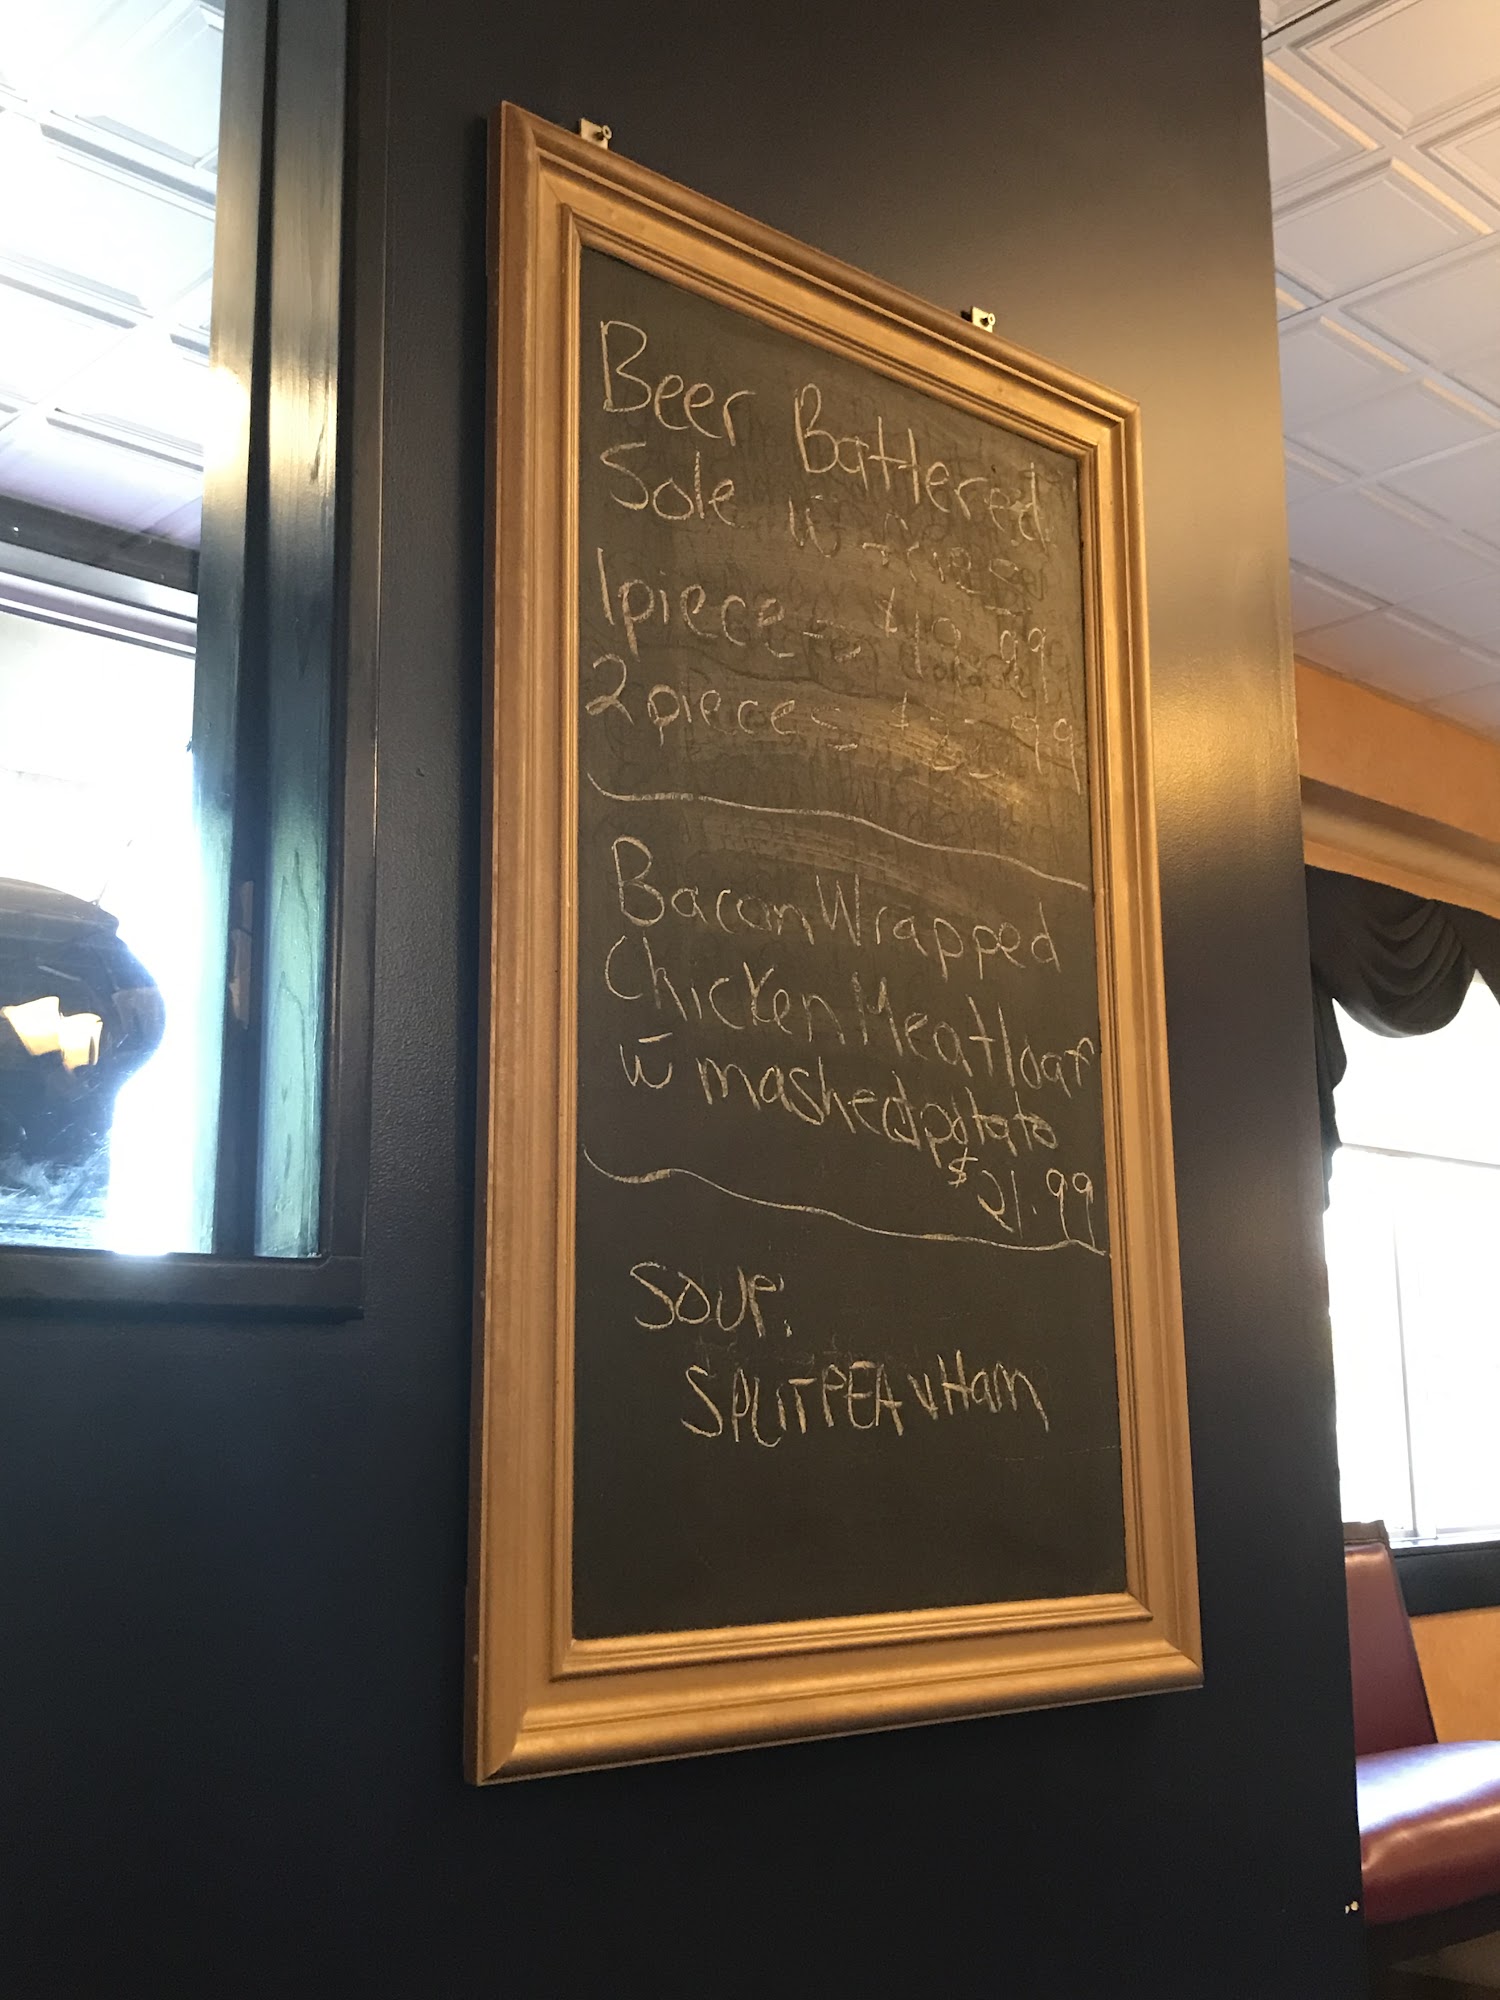 Beer Battered
Sole w̄ fries
1 piece - $19.99
2 pieces
Bacon Wrapped
Chicken Meatloaf
w̄ mashed potato
$21.99
SOUP:
SPLIT PEA w Ham